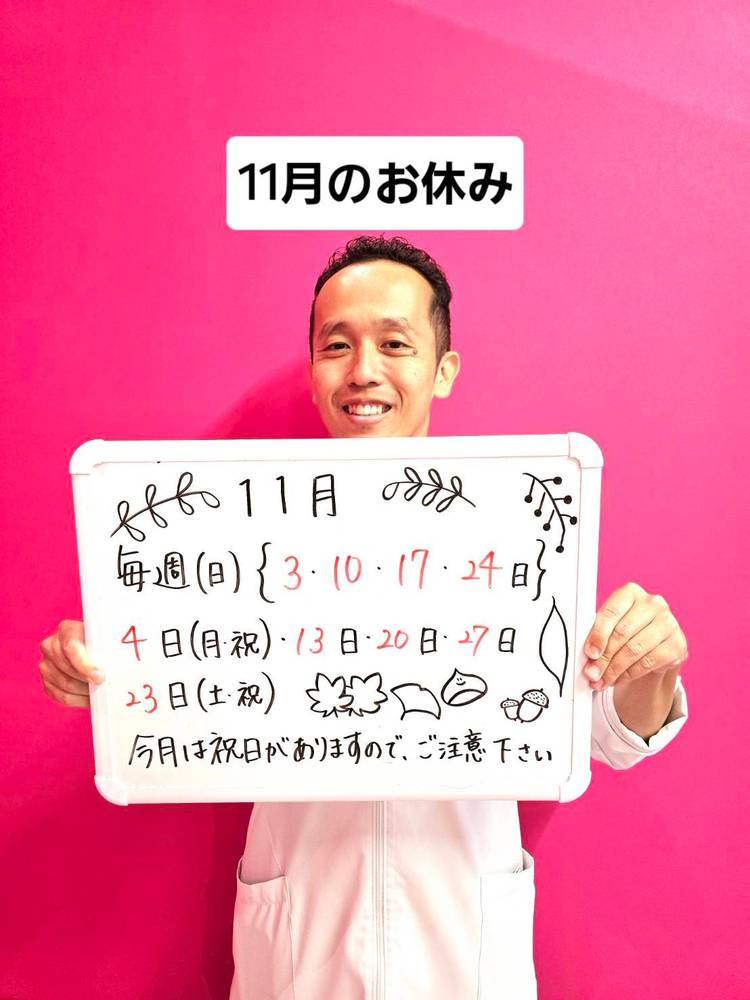 11月のお休み
11月
毎週(日){3・10・17・24日}
4日(月・祝)・13日・20日・27日
23日(土・祝)
今月は祝日がありますので、ご注意下さい